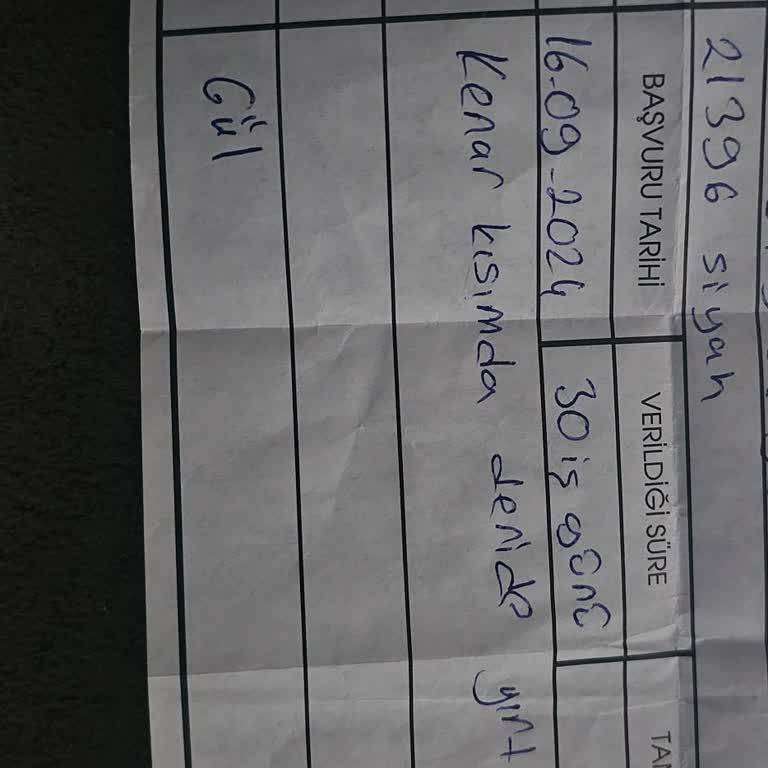 21396 siyah
BAŞVURU TARİHİ VERİLDİĞİ SÜRE TA
16.09.2024 30 iş günü
Kenar kısımda deride yırt
Gül